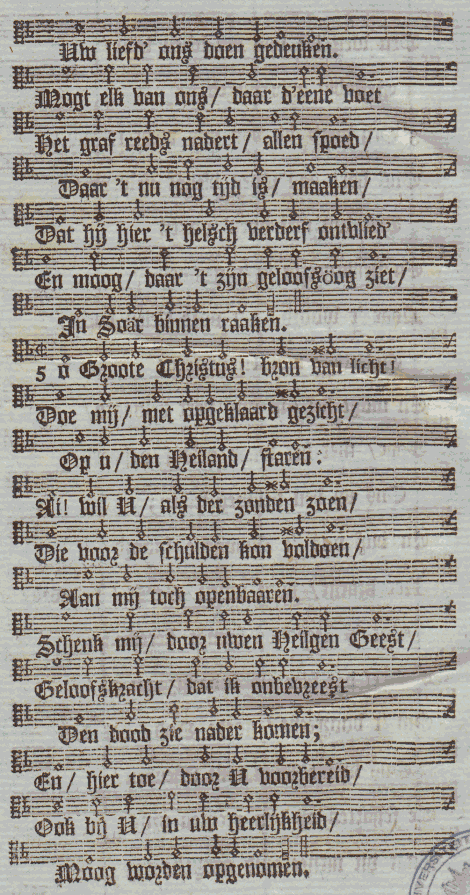 Uw liefd' ons doen gedenken.
Mogt elk van ons/ daar d'eene voet
Het graf reeds nadert/ allen spoed/
Daar 't nu nog tijd is/ maaken/
Dat hij hier 't helsch verderf ontvlied'
En moog/ daar 't zijn geloofsöog ziet/
In Soär binnen raaken.
5 ô Groote Christus! bron van licht!
Doe mij/ met opgeklaard gezicht/
Op u/ den Heiland/ staren:
Ai! wil U/ als der zonden zoen/
Die voor de schulden kon voldoen/
Aan mij toch openbaaren.
Schenk mij/ door uwen Heilgen Geest/
Geloofskracht/ dat ik onbevreest
Den dood zie nader komen;
En/ hier toe/ door U voorbereid/
Ook bij U/ in uw heerlijkheid/
Moog worden opgenomen.